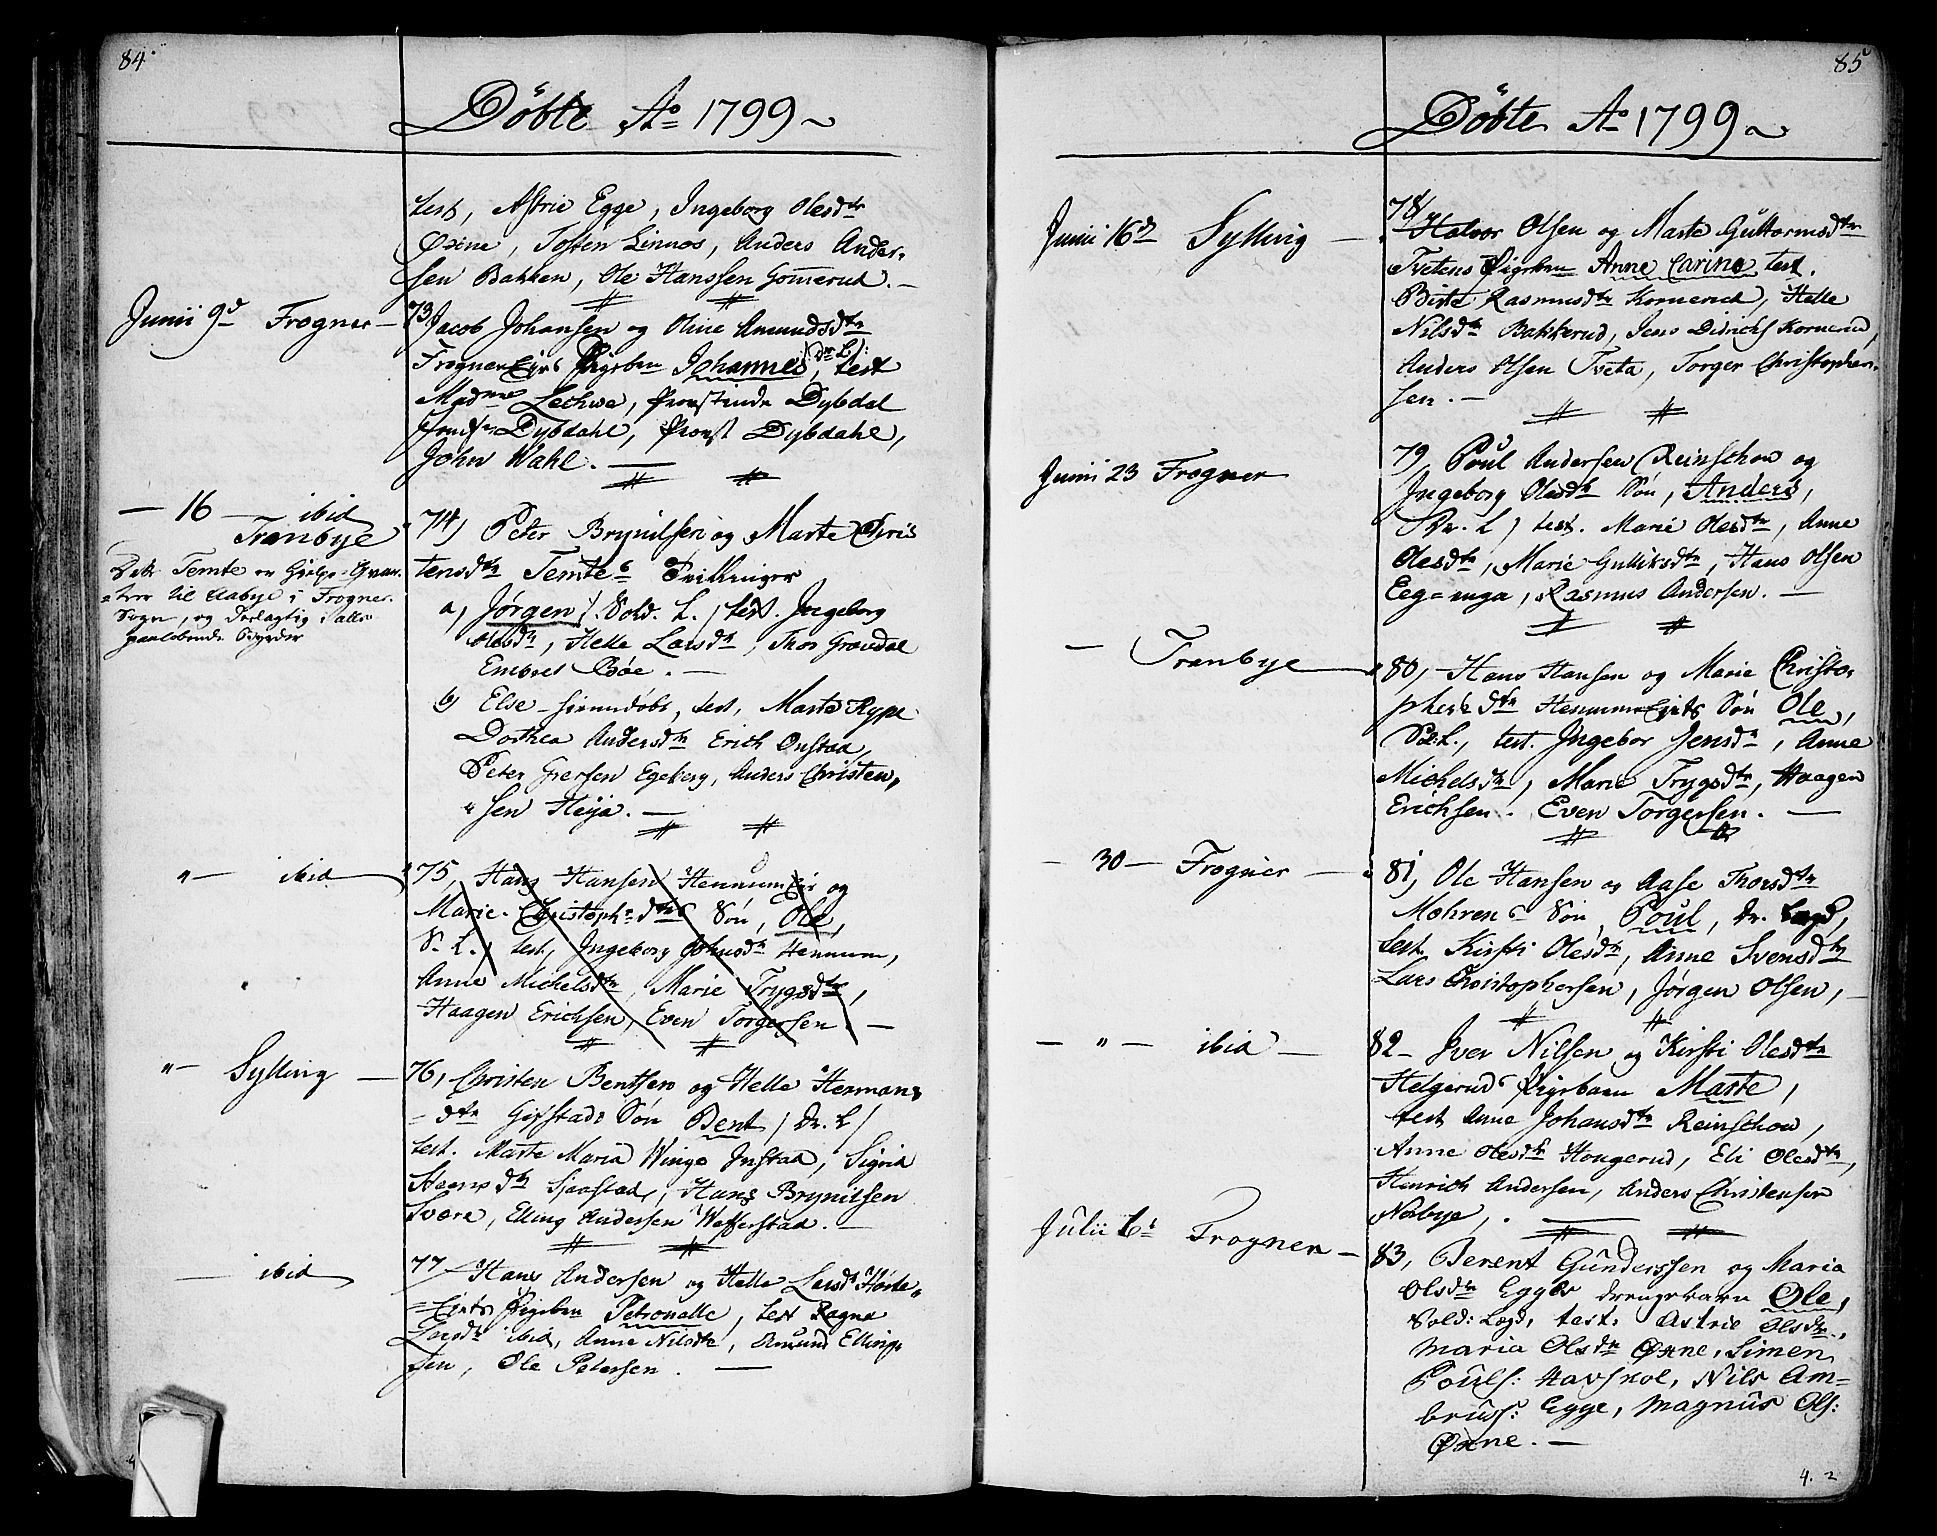 84.
Döbte Ao 1799
test, Astrie Egge, Ingeborg Olesdtr
Öxine, Tosten Linnos, Anders Ander-
sen Bakken, Ole Hanssen Gommerud. -
Junii 9d Frogner - 73 Jacob Johansen og Oline Amundsdtr
Frogner Eyes Pigebn Johannes (Dr L): test
Madme Lechwe, Provstende Dybdal
Dybdahl, Provst Dybdahl,
John Wahl. -
- 16 - ibid
Tranbye
74) Peter Brynilsen og Marte Chris
tensdtr Temtes Tvillinger
Dette Temte er Hielpe-Qvar-
teer til Aabye i Frogner
Sogn, og Deelagtig i alle
paalobende Byrder
a, Jörgen /. Sold. L. / test. Ingeborg
Olesdtr, Helle Larsdtr, Thor Gravdal
Embret Böe. -
b) Else - hiemdöbt, test, Marte Rype
Dorthea Andersdtr Erich Onstad,
Peter Iversen Egeberg, Anders Christen,
" sen Heija. -
" - ibid
75, Hans Hansen Hennum Eie og
Marie Christophrdtrs Sön, Ole,
S. L., test, Ingeborg Johnsdtr Hennum,
Anne Michelsdtr, Marie Trygsdtr,
Haagen Erichsen, Even Torgersen. -
" - Sylling -
76, Christen Bentsen og Helle Hermans
= dtr Gifstads Sön Bent / Dr. L /
test. Marte Maria Winge Instad, Sigrid
Hansdtr Sjaastad, Hans Brynilsen
Svære, Elling Andersen Wefferstad. -
- ibid
77 - Hans Andersen og Helle Larsdtr Hörte-
= Eyets Pigebn Petronelle, test Ragne
Larsdtr ibid, Anne Nilsdtr, Amund Elling-
sen, Ole Petersen. -
85
Döbte Ao 1799
Junii 16d Sylling -
78/
Halvor Olsen og Marte Guttormsdtr
Tvetens Pigebn Anne Carine, test.
Birte Rasmusdtr Kornerud, Helle
Nilsdtr Bakkerud, Jens Didrichs Kornerud,
Anders Olsen Tveta, Torger Christopher-
sen. -
Junii 23 Frogner
79, Poul Andersen Reinschou og
Ingeborg Olesdtr Sön, Anders,
/ Dr. L / test. Marie Olesdtr, Anne
Olesdtr, Marie Gulliksdtr, Hans Olsen
Eeg=enga, Rasmus Andersen. -
- Tranbye
80, - Hans Hansen og Marie Christo-
phersdtr Hennum Eyets Sön Ole,
S: L., test. Ingebor Jensdtr, Anne
Michelsdtr, Marie Trygsdtr, Haagen
Erichsen. Even Torgersen. -
- 30 - Frogner -
81, Ole Hansen og Aase Thorsdtr
Mohrens Sön Poul, Dr. Legd,
test Kirsti Olesdtr, Anne Svensdtr
Lars Christophersen, Jörgen Olsen, -
- " - ibid -
82 - Iver Nilsen og Kirsti Olesdtr
Helgeruds Pigebarn Marte,
test Anne Johansdtr Reinschou,
Anne Olesdtr Hougerud, Eli Olesdtr,
Hinrich Andersen, Anders Christensen
Nerbye, . -
Julii 6t Frogner -
83, Berent Gunderssen og Maria
Olsdtr Egges drengebarn Ole,
Sold: Legd, test: Astrie Olsdtr,
Maria Olsdtr Öxne, Simen
Pouls: Havskol, Nils Am-
brüss: Egge, Magnus Ols:
Öxne. -
4. 2